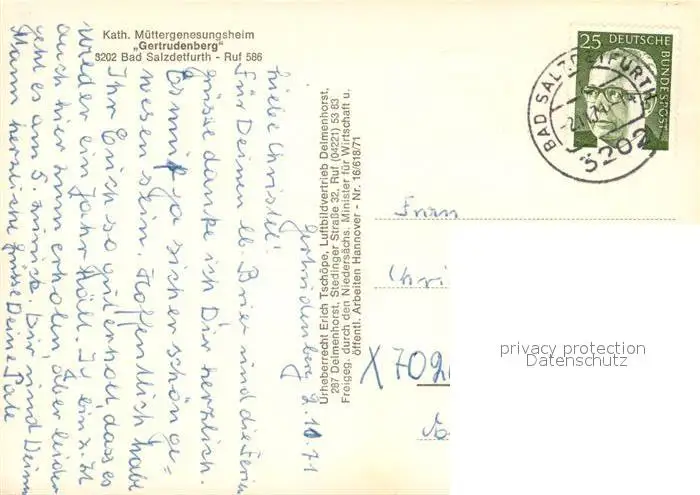 Kath. Müttergenesungsheim
„Gertrudenberg"
3202 Bad Salzdetfurth - Ruf 586
25 DEUTSCHE BUNDESPOST
BAD SALZDETFURTH
3202
Gertrudenberg 2.10.71
Liebe Christel!
Für Deinen lb. Brief und die Ferien
grüsse danke ich Dir herzlich.
Es muß ja sicher schön ge-
wesen sein. Hoffentlich habt
Ihr Euch so gut erholt, daß es
wieder ein Jahr hält. Ich bin z. Zt
auch hier zum erholen, aber leider
geht es am 5. zurück. Dir und Deinem
Mann herzliche Grüsse Deine
Urheberrecht Erich Tschöpe, Luftbildvertrieb Delmenhorst,
287 Delmenhorst, Stedinger Straße 32, Ruf (04221) 53 83
Freigeg. durch den Niedersächs. Minister für Wirtschaft u.
öffentl. Arbeiten Hannover - Nr. 16/618/71
Frau
Chri
X 702
privacy protection
Datenschutz